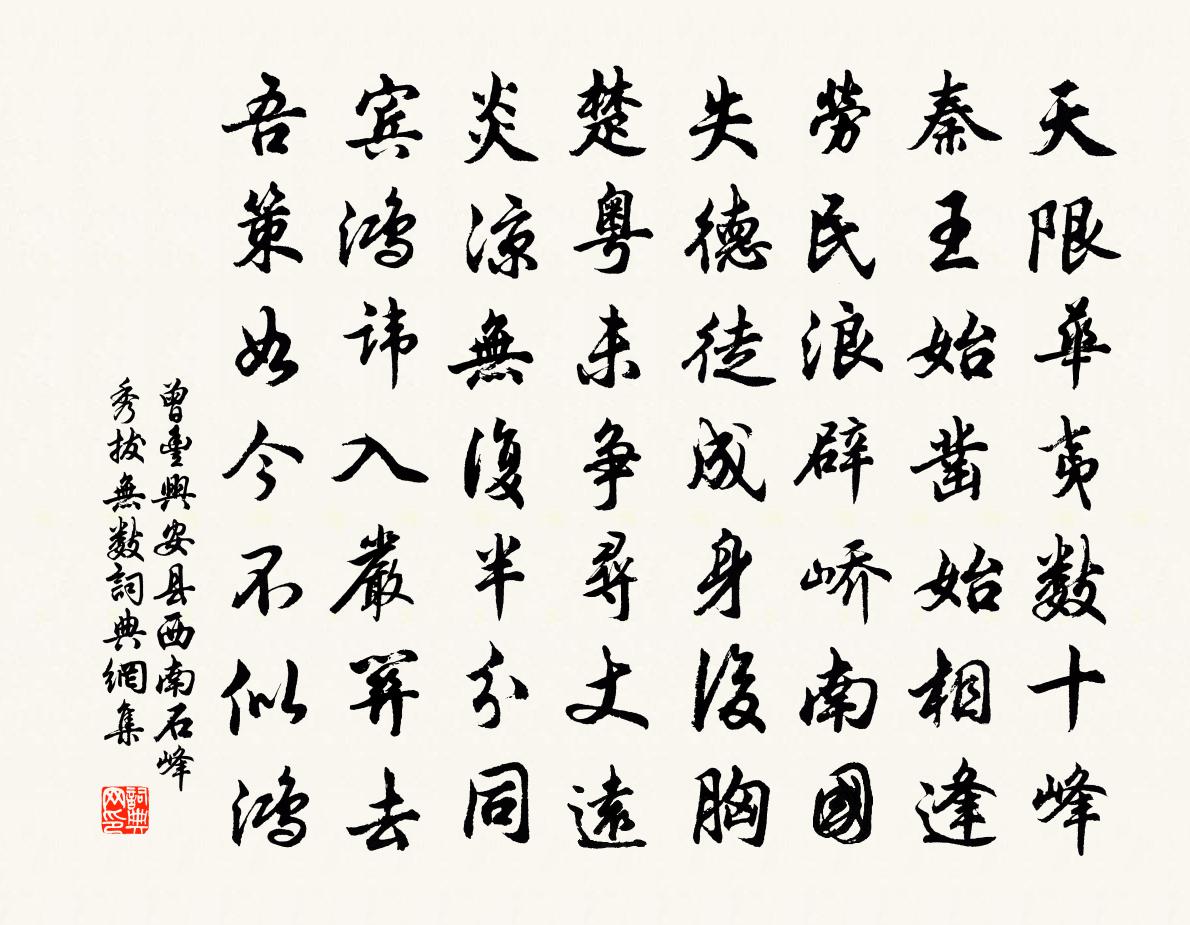 天限華夷數十峰
秦王始凿始相逢
勞民浪辟峤南國
失德徒成身後胸
楚粤未争尋丈遠
炎凉無復半分同
宾鴻讳入嚴關去
吾策如今不似鴻
曾豐興安县西南石峰
秀拔無數詞典網集
詞典網印